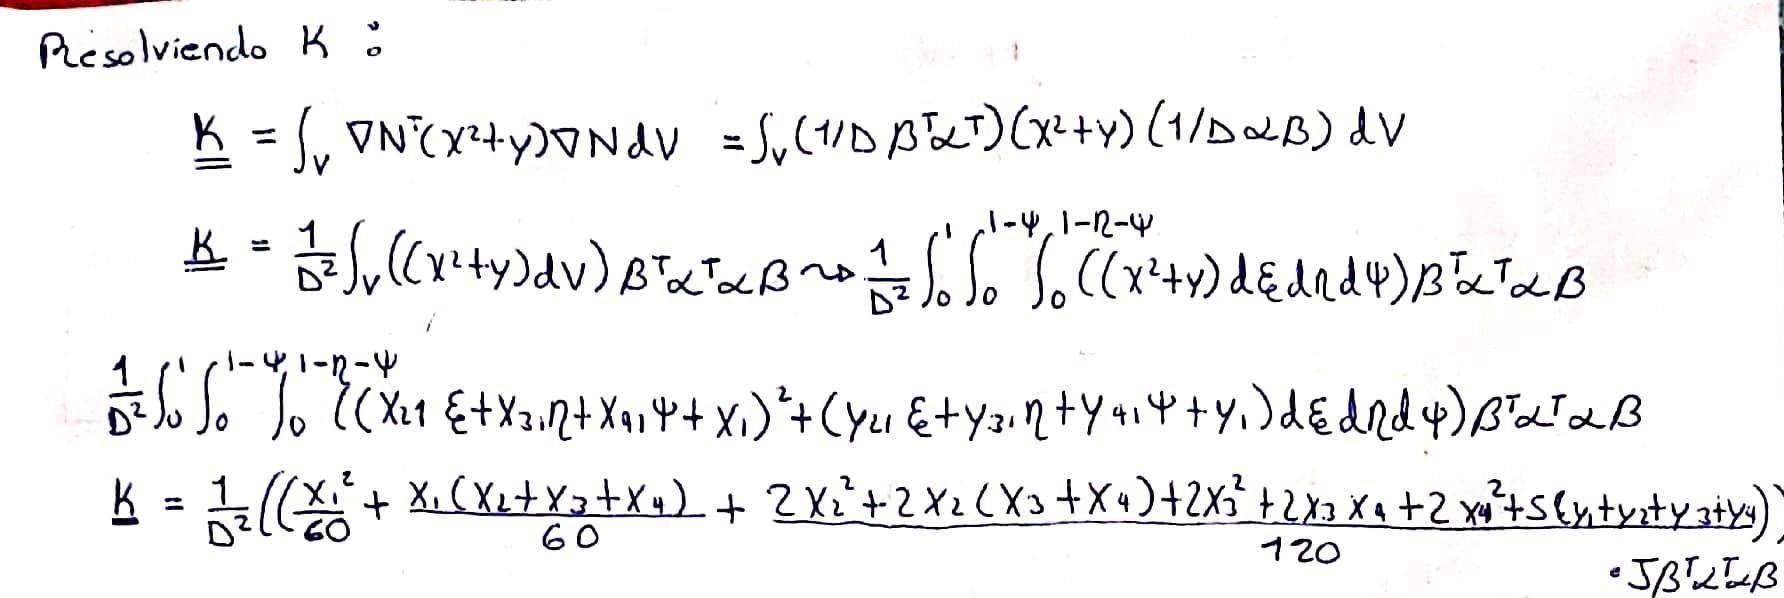 Resolviendo K :
K = ∫_V ∇N^T(x²+y)∇N dV = ∫_V (1/D β^Tα^T)(x²+y)(1/D αβ) dV
K = 1/D² ∫_V((x²+y)dV) β^Tα^Tαβ ⇝ 1/D² ∫_0^1 ∫_0^{1-ψ} ∫_0^{1-η-ψ} ((x²+y) dξdηdψ)β^Tα^Tαβ
1/D² ∫_0^1 ∫_0^{1-ψ} ∫_0^{1-η-ψ} ((x₂₁ ξ+x₃₁η+x₄₁ψ+x₁)²+(y₂₁ ξ+y₃₁η+y₄₁ψ+y₁)dξdηdψ)β^Tα^Tαβ
K = 1/D² ((x₁²/60 + x₁(x₂+x₃+x₄)/60 + (2x₂²+2x₂(x₃+x₄)+2x₃²+2x₃x₄+2x₄²+5(y₁+y₂+y₃+y₄))/120)
• Jβ^Tα^Tαβ